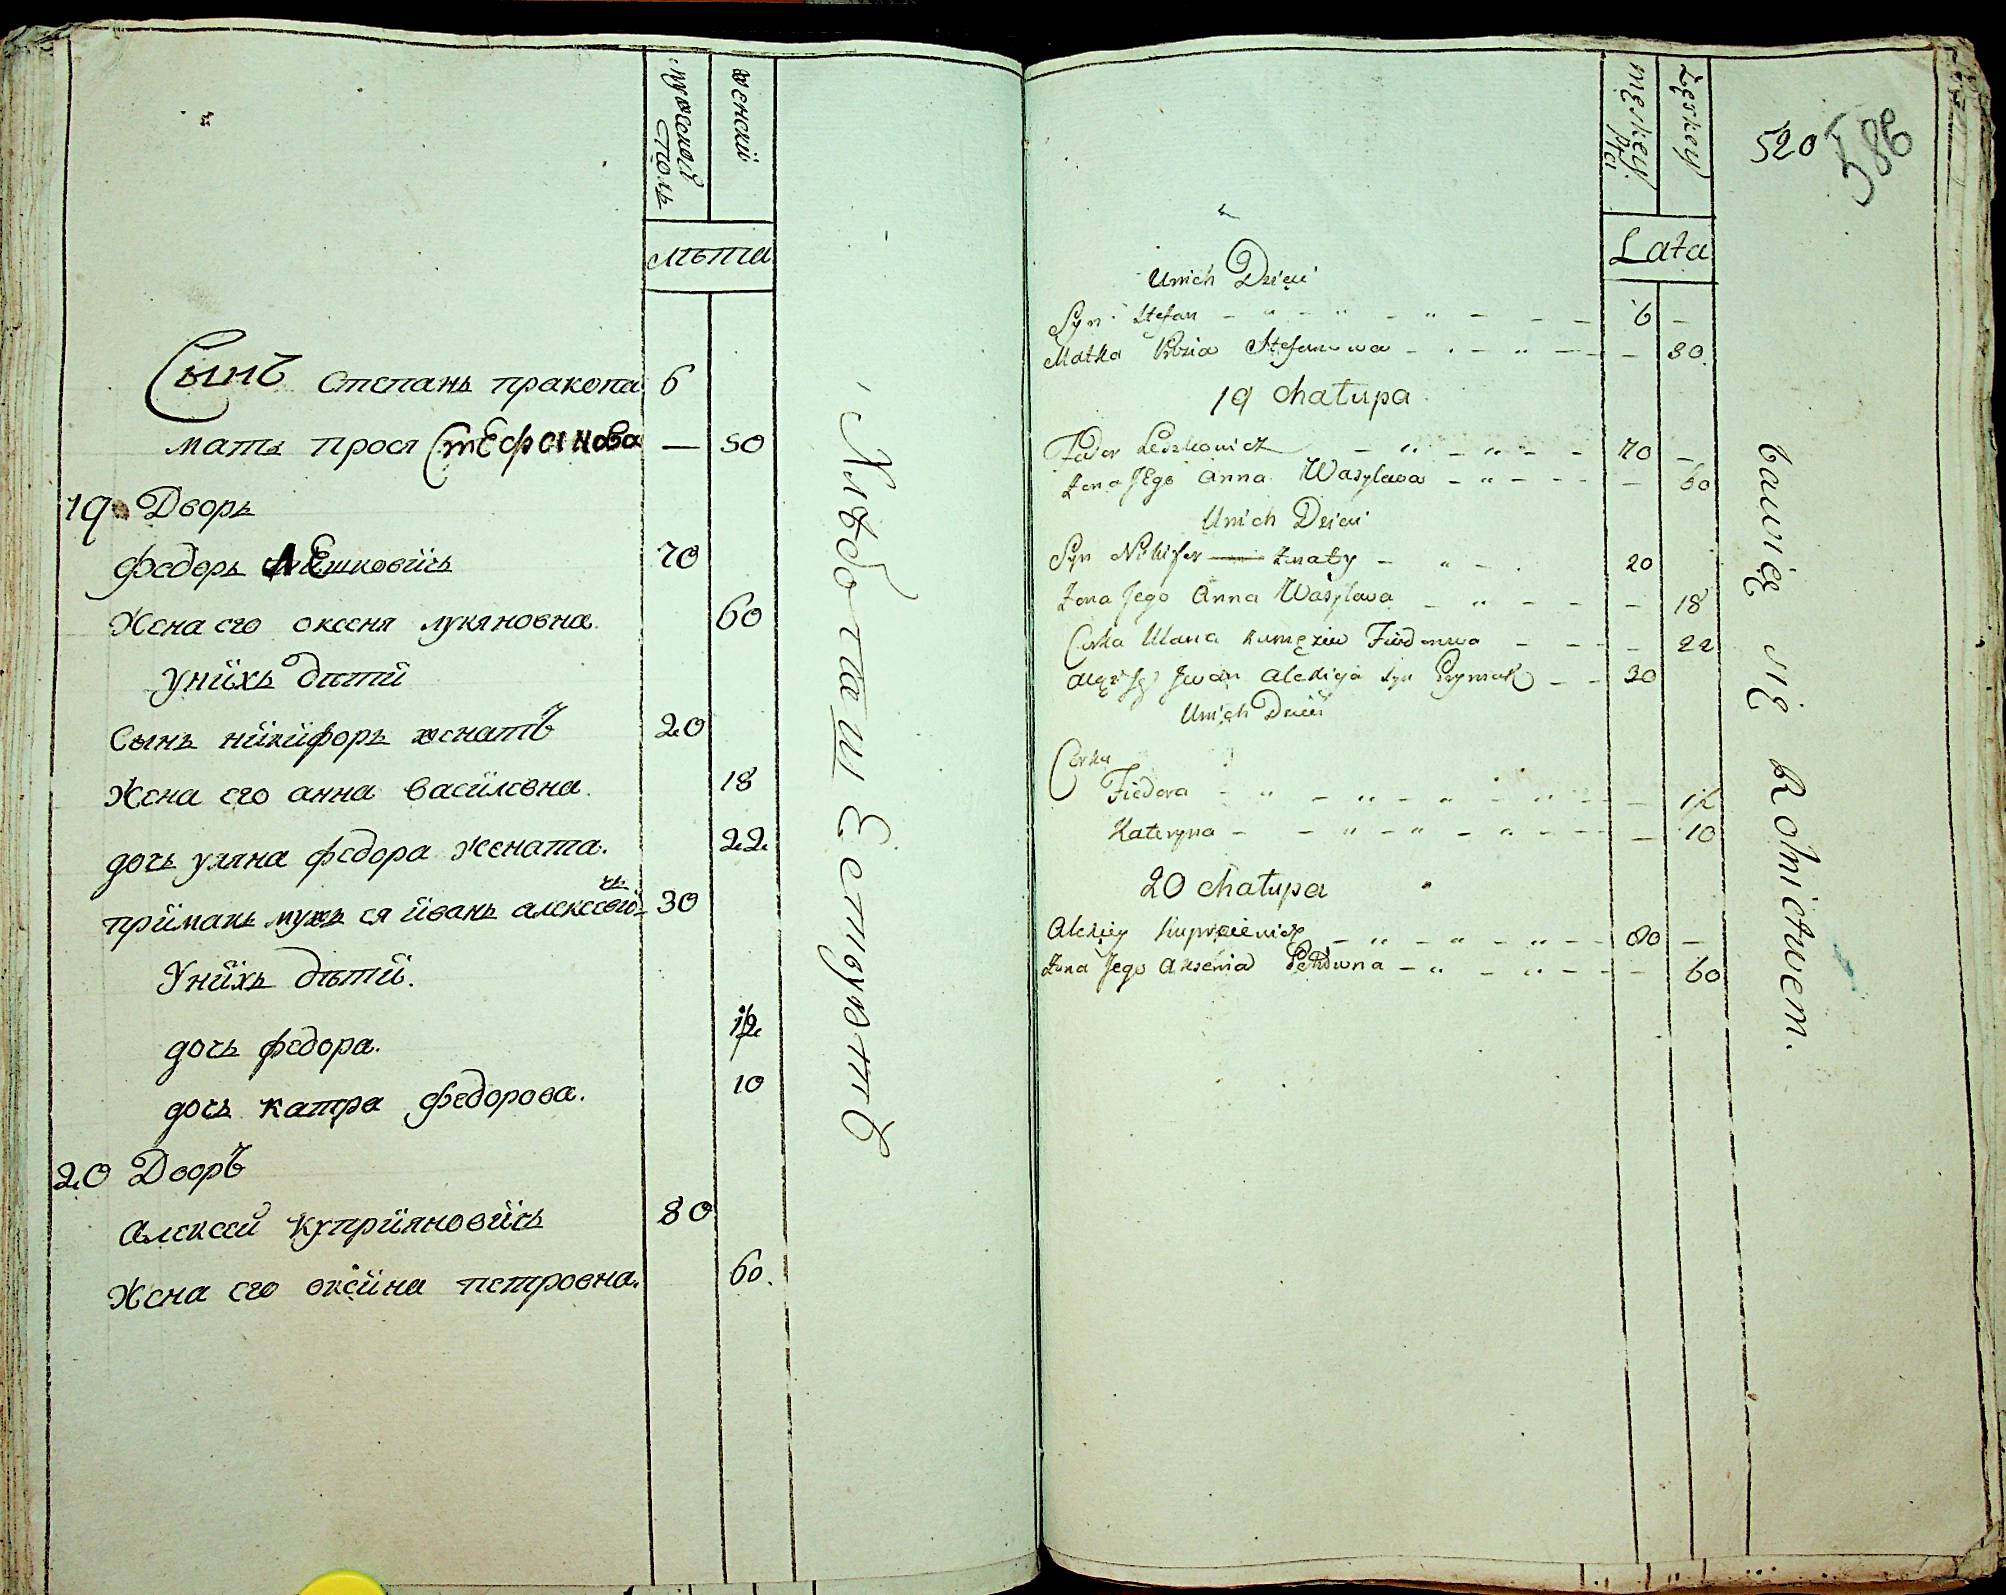 мужеской полъ
женский
лѣта
Сынъ степанъ пракопа 6
мать прося Стефанова — 50
19 Дворъ
федоръ лешковичъ 70
Жена его оксеня лукяновна. 60
Унихъ дѣти
Сынъ никифоръ женатъ 20
Жена его анна василевна. 18
дочь уляна федора жената. 22
приманъ мужъ ея иванъ алексеевичъ 30
Унихъ дѣти.
дочь федора. 12
дочь катра федорова. 10
20 Дворъ
Алексей куприяновичъ 80
Жена его оксина петровна. 60.
Хлѣбопаш Ествуютъ
męskey płci
żęskey
520
586
Lata
Unich Dzieci
Syn Stefan 6 —
Matka Prosia Stefanowa — 30.
19 chałupa
Fedor Leszkowicz 70 —
Żona Jego Anna Wasylewa — 60
Unich Dzieci
Syn Nikifor żonaty 20
Żona Jego Anna Wasylewa — 18
Corka Ulana Fiodorowa — 22
Jwan Alexieja syn Prymak 30
Unich Dzieci
Corka
Fiedora — 12
Kateryna — 10
20 chałupa
Alexiey Kuprieiewicz 80 —
Żona Jego Axenia Petrowna — 60
bawię się Rolnictwem.